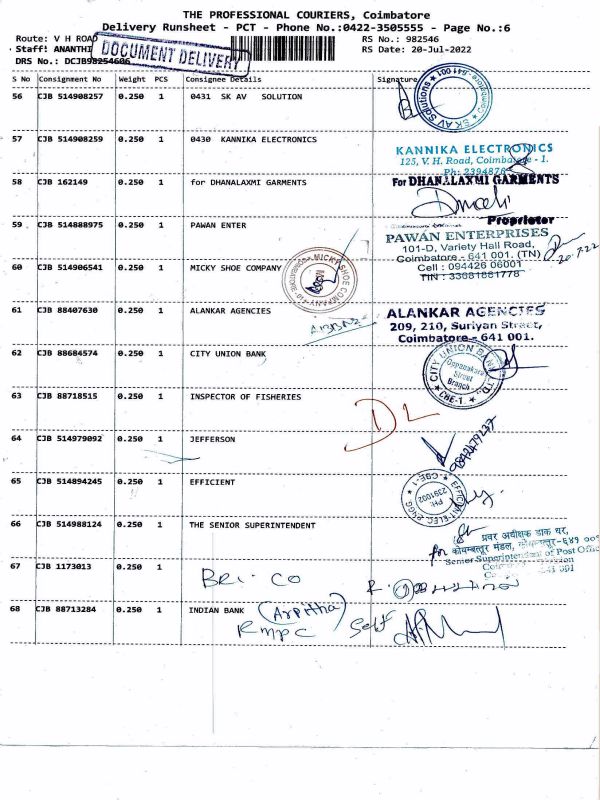 THE PROFESSIONAL COURIERS, Coimbatore
Delivery Runsheet - PCT - Phone No.:0422-3505555 - Page No.:6
Route: V H ROAD
RS No.: 982546
Staff: ANANTHI
RS Date: 20-Jul-2022
DRS No.: DCJB98254606
DOCUMENT DELIVERY
S No Consignment No Weight PCS Consignee Details Signature
56 CJB 514908257 0.250 1 0431 SK AV SOLUTION
SK AV Solutions * Coimbatore-641 001
57 CJB 514908259 0.250 1 0430 KANNIKA ELECTRONICS
KANNIKA ELECTRONICS
125, V. H. Road, Coimbatore - 1.
Ph: 2394876
58 CJB 162149 0.250 1 for DHANALAXMI GARMENTS
For DHANALAXMI GARMENTS
Proprietor
59 CJB 514888975 0.250 1 PAWAN ENTER
PAWAN ENTERPRISES
101-D, Variety Hall Road,
Coimbatore - 641 001. (TN)
Cell : 094426 06001
TIN : 33681881778
20.7.22
60 CJB 514906541 0.250 1 MICKY SHOE COMPANY
MICKY SHOE COMPANY
61 CJB 88407630 0.250 1 ALANKAR AGENCIES
ALANKAR AGENCIES
209, 210, Suriyan Street,
Coimbatore - 641 001.
62 CJB 88684574 0.250 1 CITY UNION BANK
CITY UNION BANK LTD.
Oppanakara
Street
Branch
* CBE-1. *
63 CJB 88718515 0.250 1 INSPECTOR OF FISHERIES
DL
64 CJB 514979092 0.250 1 JEFFERSON
65 CJB 514894245 0.250 1 EFFICIENT
PH: 2391002
66 CJB 514988124 0.250 1 THE SENIOR SUPERINTENDENT
प्रवर अधीक्षक डाक घर,
for कोयम्बत्तूर मंडल, कोयम्बत्तूर-६४१ ००१
Senior Superintendent of Post Offic
67 CJB 1173013 0.250 1
68 CJB 88713284 0.250 1 INDIAN BANK (Arpitha)
RMPC Self